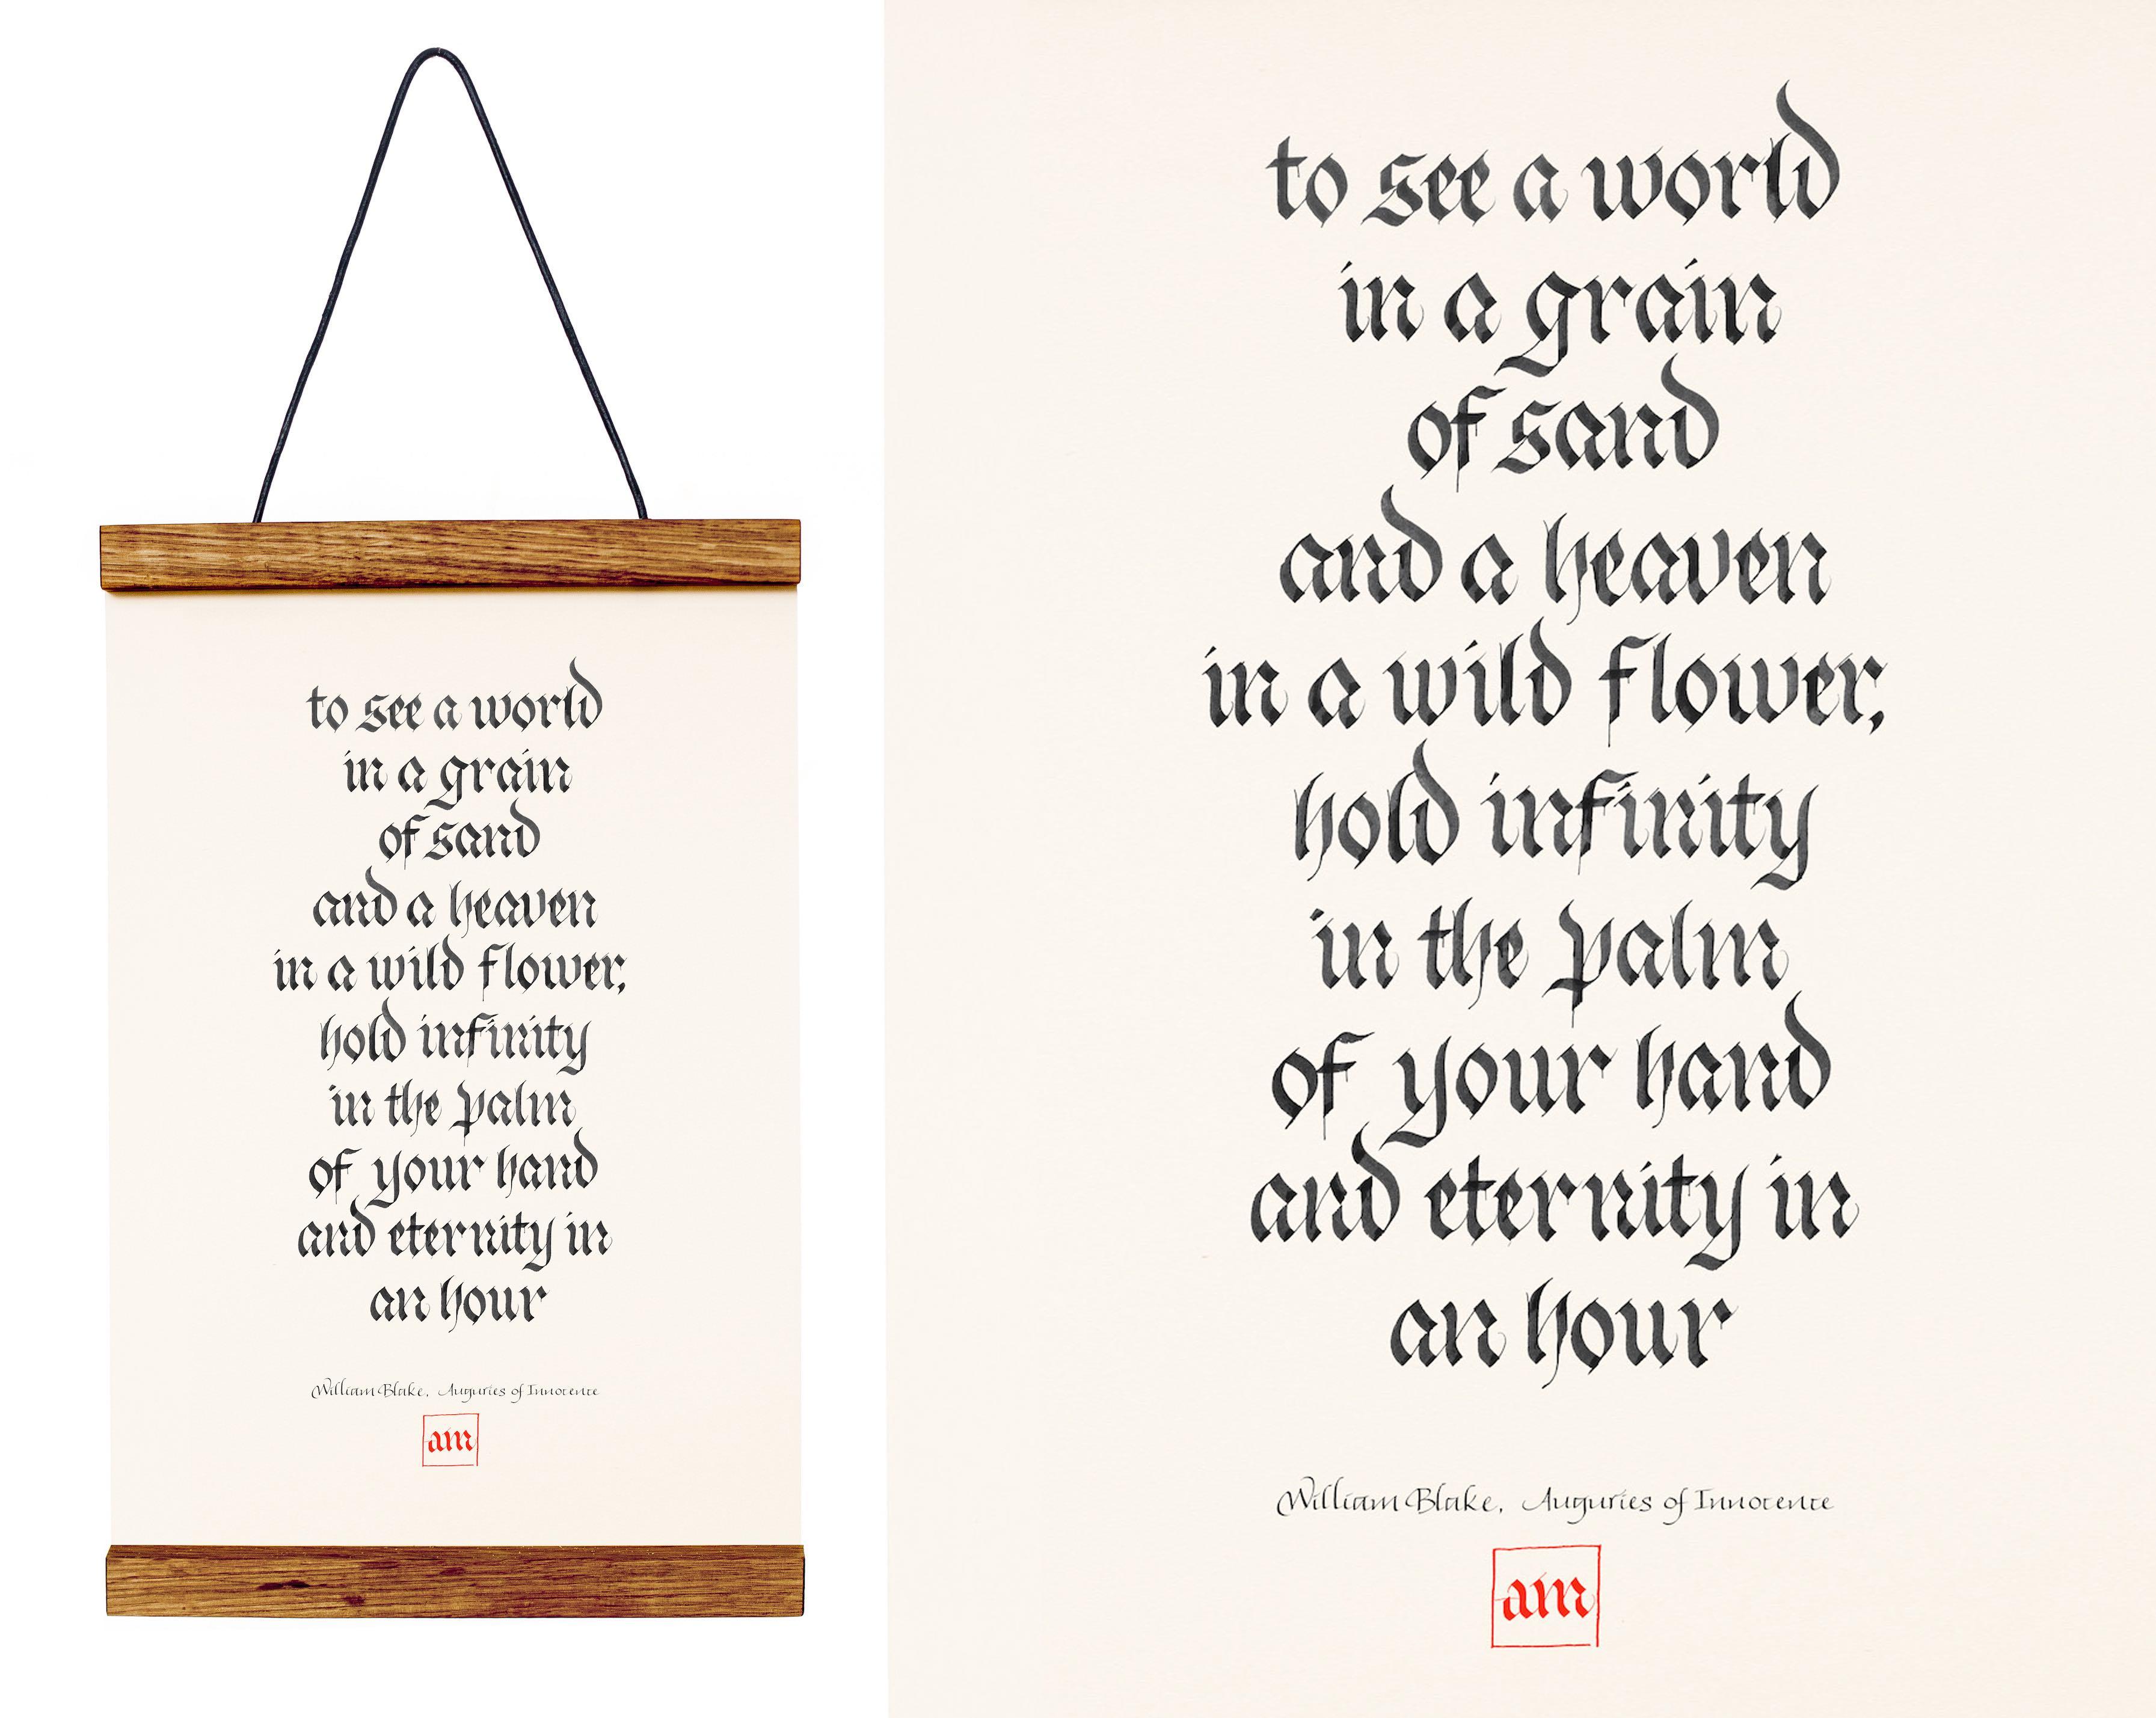 to see a world
in a grain
of sand
and a heaven
in a wild flower,
hold infinity
in the palm
of your hand
and eternity in
an hour
William Blake, Auguries of Innocence
am
to see a world
in a grain
of sand
and a heaven
in a wild flower,
hold infinity
in the palm
of your hand
and eternity in
an hour
William Blake, Auguries of Innocence
am